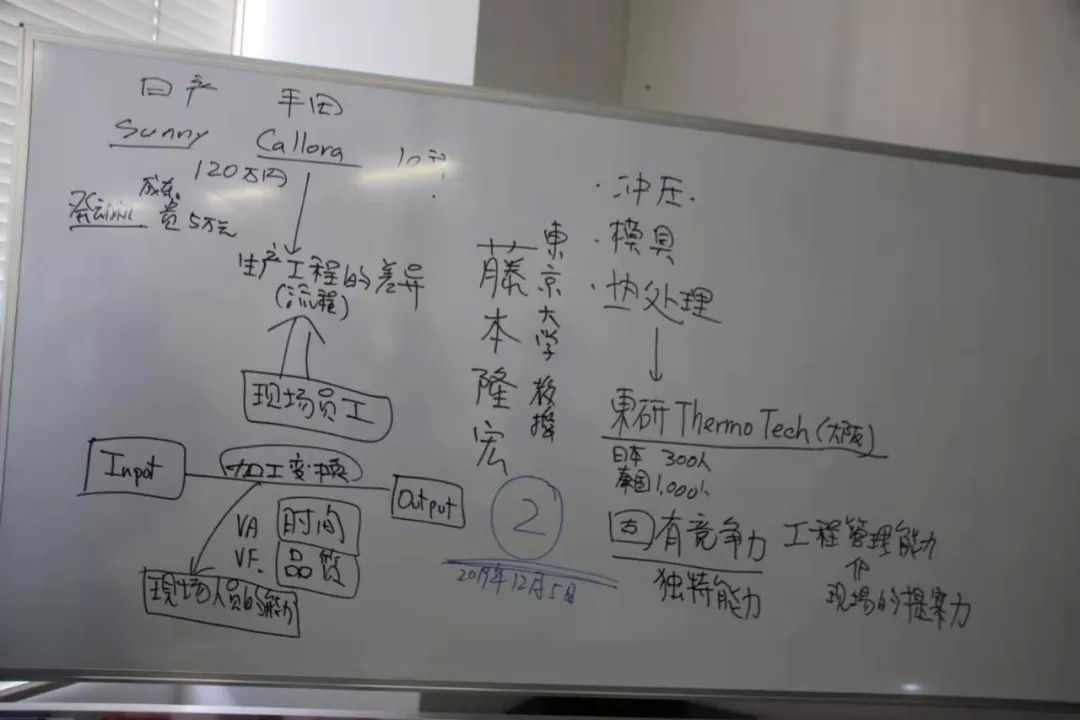 日产 丰田
Sunny Callora
120万円
成本
差 5万元
生产工程的差异
(流程)
现场员工
Input
加工变换
Output
VA 时间
VF. 品质
現场人员的能力
藤本隆宏
東京大学 教授
2
2019年12月5日
·冲压.
·模具
·热处理
東研 Thermo Tech (大阪)
日本 300人
泰国 1,000人
固有竞争力
独特能力
工程管理能力
现場的提案力